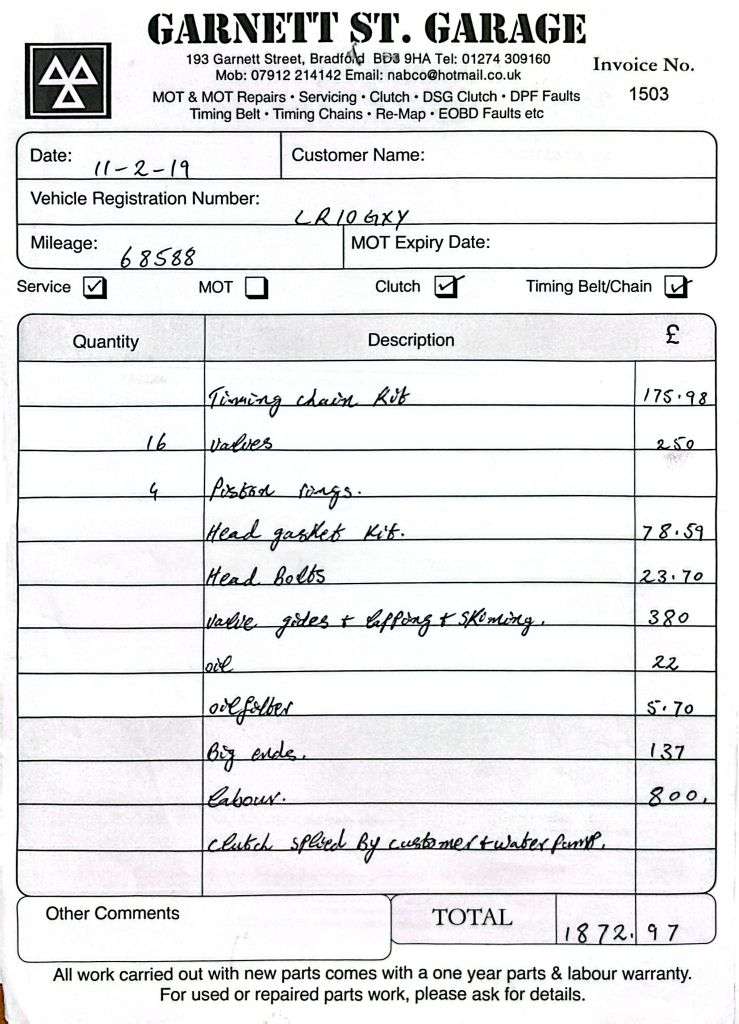 GARNETT ST. GARAGE
193 Garnett Street, Bradford BD3 9HA Tel: 01274 309160
Mob: 07912 214142 Email: nabco@hotmail.co.uk
Invoice No.
1503
MOT & MOT Repairs • Servicing • Clutch • DSG Clutch • DPF Faults
Timing Belt • Timing Chains • Re-Map • EOBD Faults etc
Date: 11-2-19 Customer Name:
Vehicle Registration Number: LR10GXY
Mileage: 68588 MOT Expiry Date:
Service MOT Clutch Timing Belt/Chain
Quantity Description £
Timing chain Kit 175.98
16 valves 250
4 Piston rings.
Head gasket Kit. 78.59
Head Bolts 23.70
valve gides + lapping + skiming. 380
oil 22
oil filter 5.70
Big ends. 137
labour. 800.
clutch splied By customer + water pump.
Other Comments TOTAL 1872.97
All work carried out with new parts comes with a one year parts & labour warranty.
For used or repaired parts work, please ask for details.